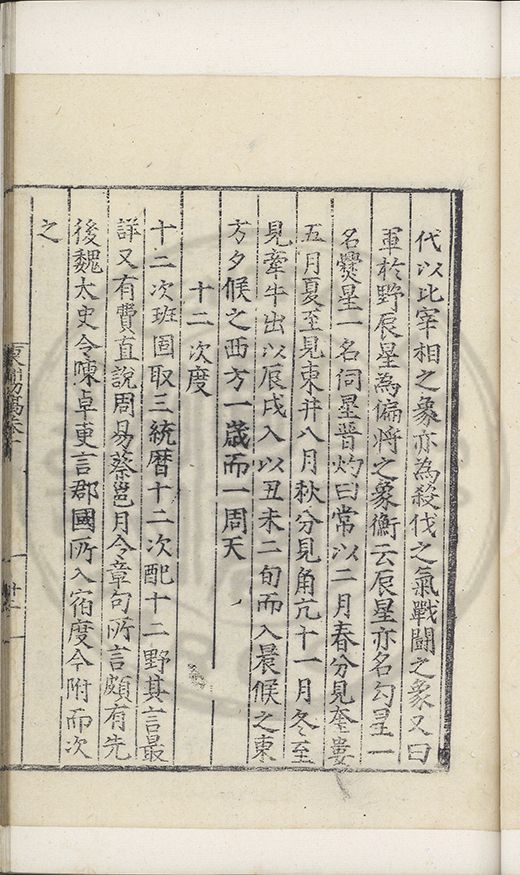 代以此宰相之象亦為殺伐之氣戰鬭之象又曰
軍於野辰星為偏將之象衡云辰星亦名勾星一
名爨星一名伺星晉灼曰常以二月春分見奎婁
五月夏至見東井八月秋分見角亢十一月冬至
見牽牛出以辰戌入以丑未二旬而入晨候之東
方夕候之西方一歲而一周天
十二次度
十二次班固取三統曆十二次配十二野其言最
詳又有費直說周易蔡邕月令章句所言頗有先
後魏太史令陳卓更言郡國所入宿度今附而次
之